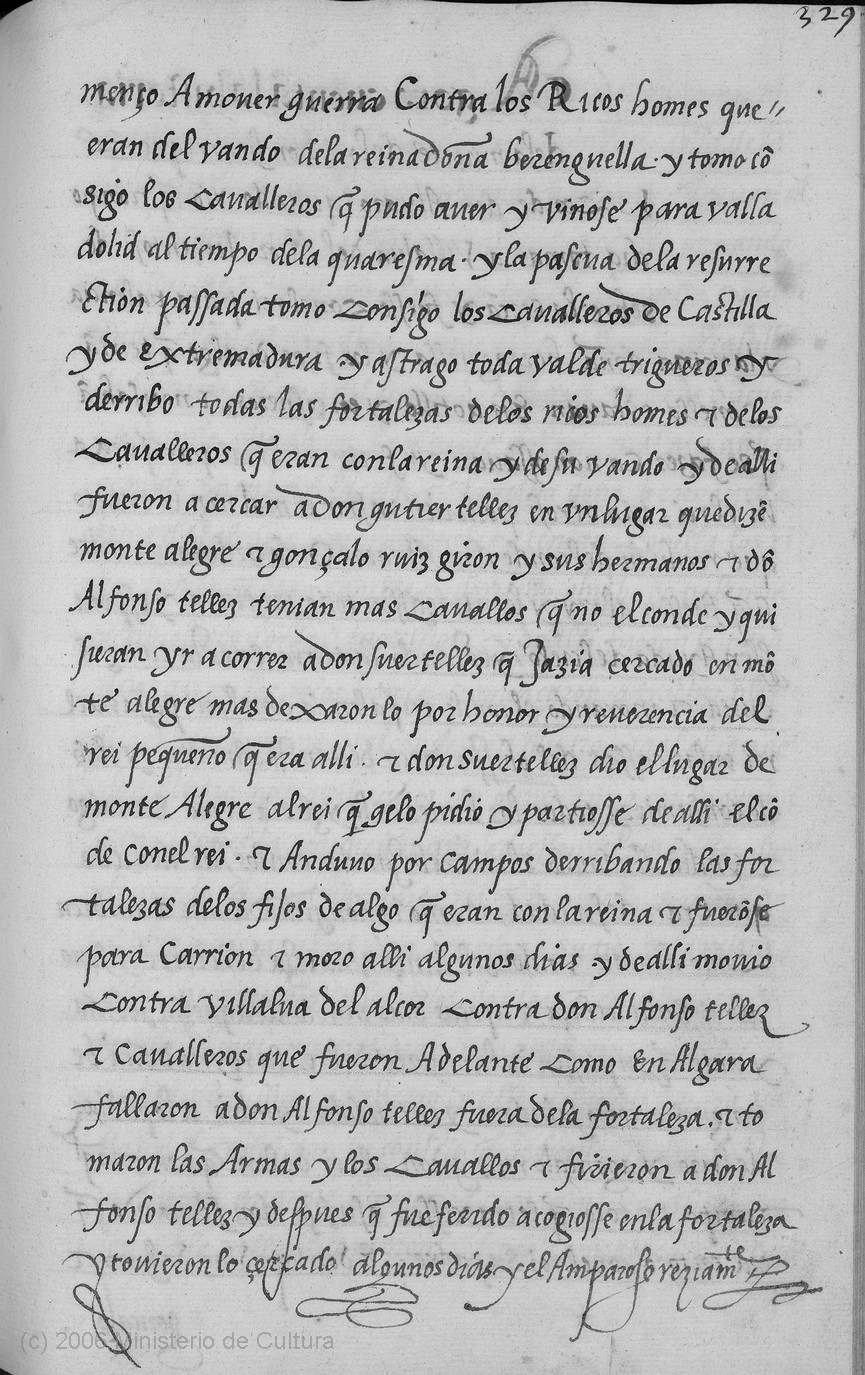 329
menço Amouer guerra Contra los Ricos homes que〃
eran del vando dela reina doña berenguella · y tomo cõ
sigo los Cavalleros q̃ pudo auer y vinose para valla
dolid al tiempo dela quaresma · y la pascua dela resurre
ction passada tomo Consigo los Cavalleros de Castilla
y de extremadura y astrago toda val de trigueros y
derribo todas las fortalezas delos ricos homes ⁊ delos
Cavalleros q̃ eran con la reina y de su vando y de alli
fueron a cercar a don gutier tellez en vn lugar que dizẽ
monte alegre ⁊ gonçalo ruiz giron y sus hermanos ⁊ dõ
Alfonso tellez tenian mas Cavallos q̃ no el conde y qui
sieran yr a correr a don suer tellez q̃ Jazia cercado en mõ
te alegre mas dexaron lo por honor y reuerencia del
rei pequeño q̃ era alli · ⁊ don suer tellez dio el lugar de
monte Alegre al rei q̃ gelo pidio y partiosse de alli el cõ
de Con el rei · ⁊ Anduuo por Campos derribando las for
talezas delos fijos de algo q̃ eran con la reina ⁊ fuerõse
para Carrion ⁊ moro alli algunos dias y de alli mouio
Contra villalua del alcor Contra don Alfonso tellez
⁊ Cavalleros que fueron Adelante Como En Algara
fallaron a don Alfonso tellez fuera dela fortaleza . ⁊ to
maron las Armas y los Cavallos ⁊ firieron a don Al
fonso tellez y despues q̃ fue ferido acogiosse en la fortaleza
y tovieron lo çercado algunos dias y el Amparose reziamte
(c) 2006 Ministerio de Cultura